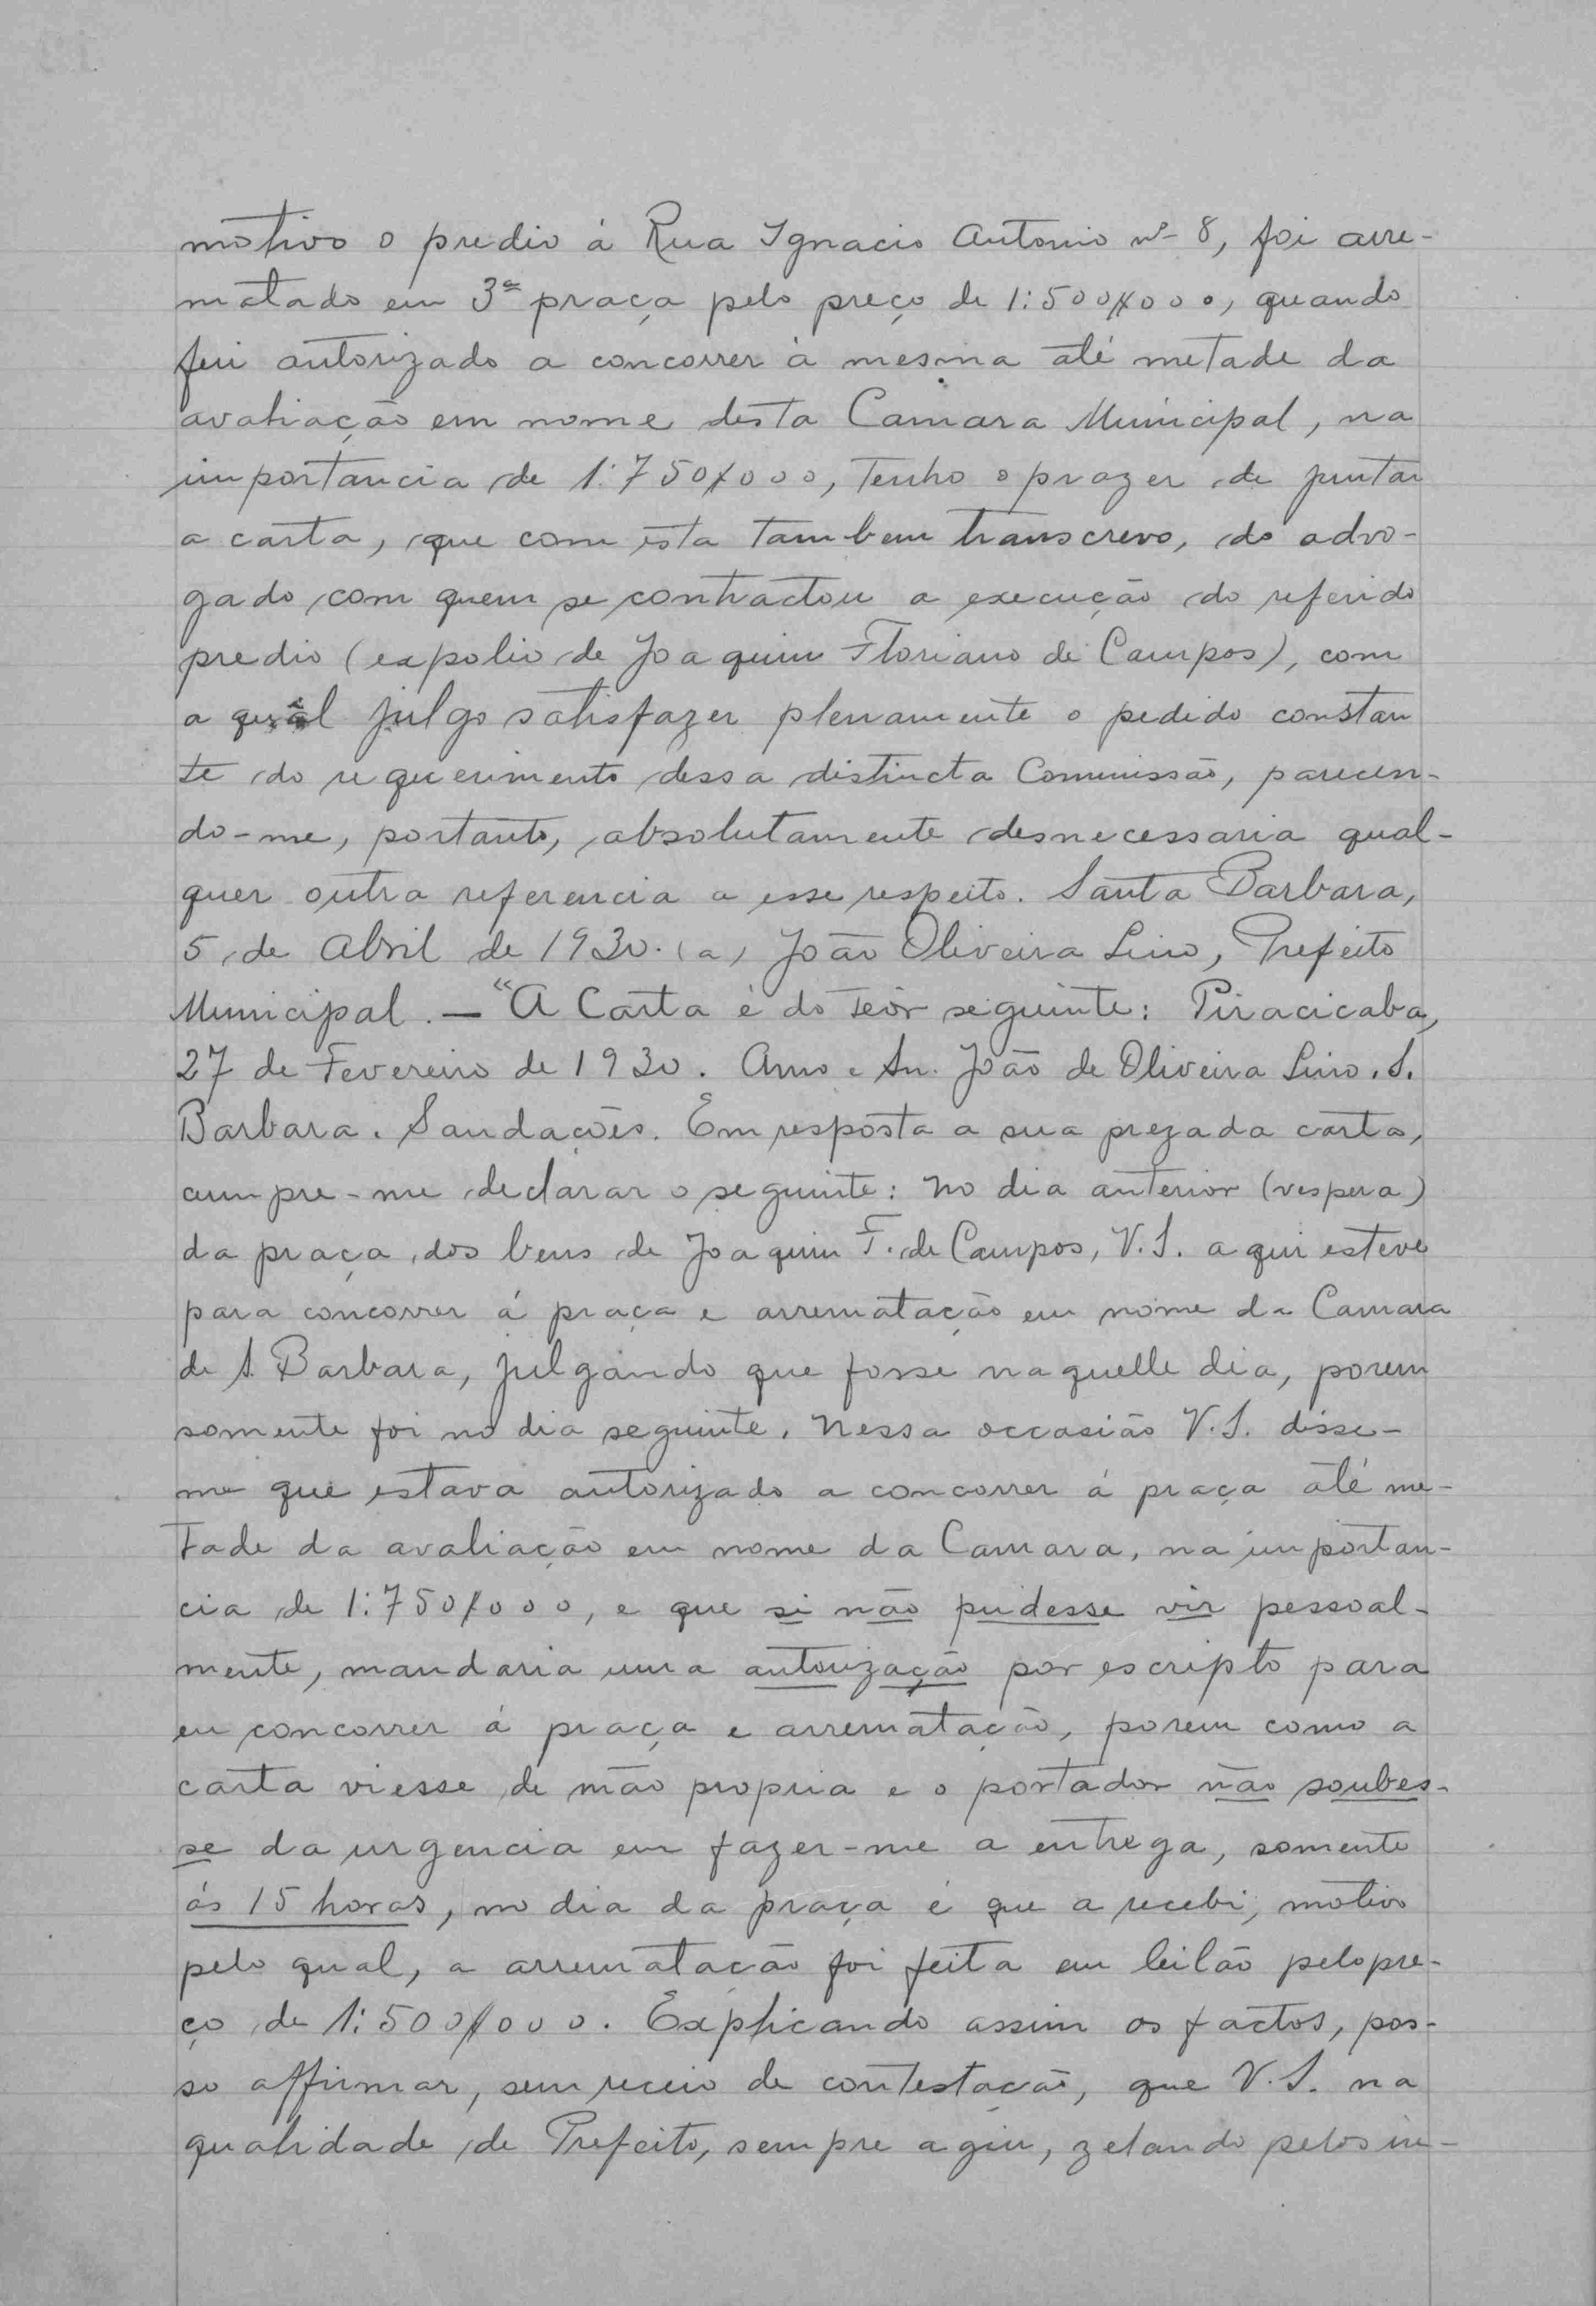 motivo o predio á Rua Ignacio Antonio nº 8, foi arre-
matado em 3ª praça pelo preço de 1:500$000, quando
fui autorizado a concorrer á mesma até metade da
avaliação em nome desta Camara Municipal, na
importancia de 1:750$000, tenho o prazer de juntar
a carta, que com esta tambem transcrevo, do advo-
gado com quem se contractou a execução do referido
predio (expolio de Joaquim Floriano de Campos), com
a qual julgo satisfazer plenamente o pedido constan
te do requerimento dessa distincta Commissão, parecen-
do-me, portanto, absolutamente desnecessaria qual-
quer outra referencia a esse respeito. Santa Barbara,
5 de Abril de 1930. (a) João Oliveira Lino, Prefeito
Municipal. — "A Carta é do teôr seguinte: Piracicaba,
27 de Fevereiro de 1930. Amo e Snr. João de Oliveira Lino. S.
Barbara. Saudações. Em resposta a sua prezada carta,
cumpre-me declarar o seguinte: No dia anterior (vespera)
da praça dos bens de Joaquim F. de Campos, V.S. aqui esteve
para concorrer á praça e arrematação em nome da Camara
de S. Barbara, julgando que fosse naquelle dia, porem
somente foi no dia seguinte. Nessa occasião V.S. disse-
me que estava autorizado a concorrer á praça até me-
tade da avaliação em nome da Camara, na importan-
cia de 1:750$000, e que si não pudesse vir pessoal-
mente, mandaria uma autorização por escripto para
eu concorrer á praça e arrematação, porem como a
carta viesse de mão propria e o portador não soubes-
se da urgencia em fazer-me a entrega, somente
ás 15 horas, no dia da praça é que a recebi, motivo
pelo qual, a arrematação foi feita em leilão pelo pre-
ço de 1:500$000. Explicando assim os factos, pos-
so affirmar, sem receio de contestação, que V.S. na
qualidade de Prefeito, sempre agiu, zelando pelos in-